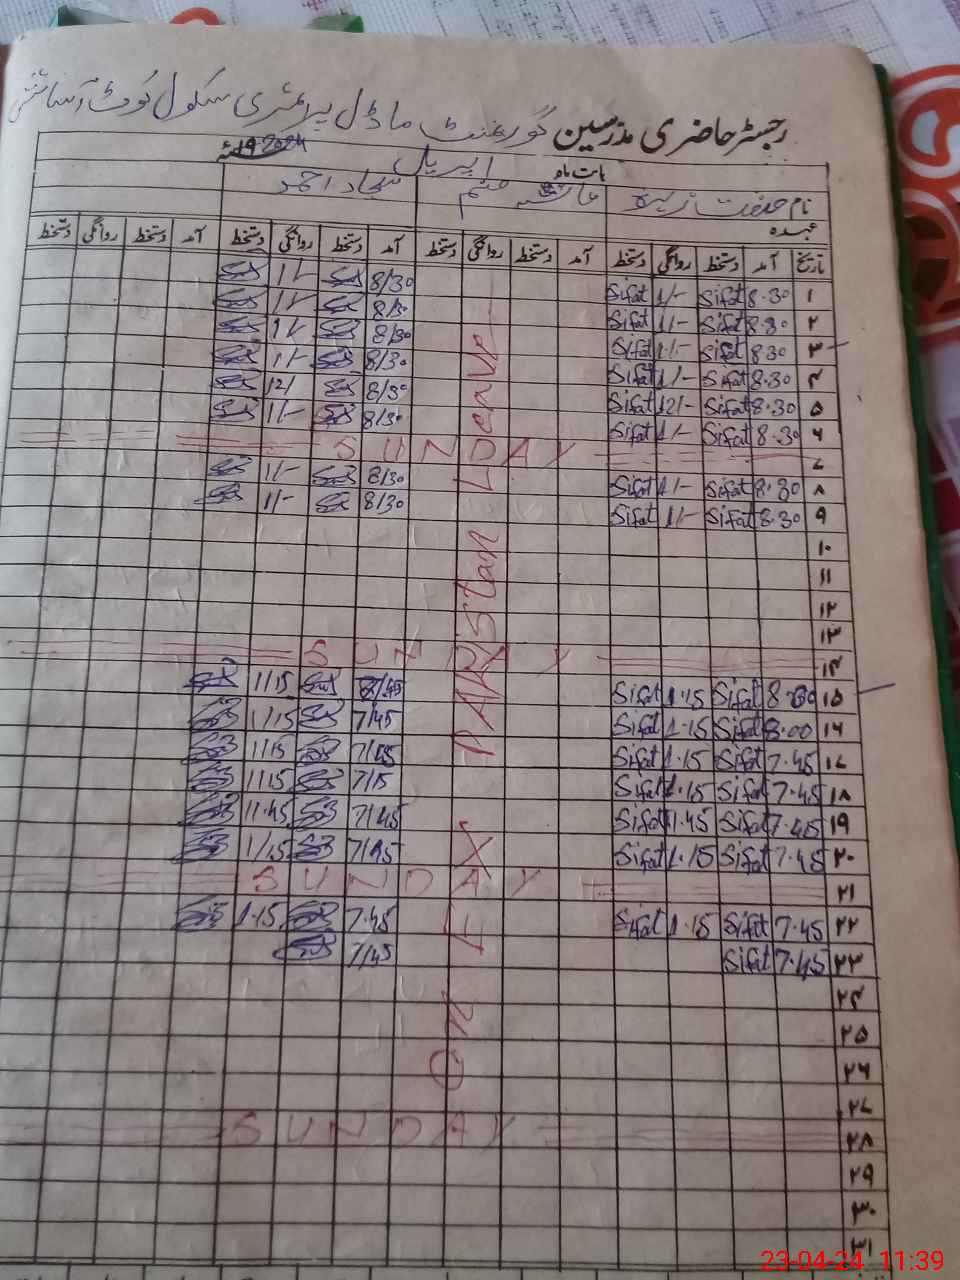 رجسٹر حاضری مدرسین گورنمنٹ ماڈل پرائمری سکول کوٹ
بابت ماہ اپریل 2024
نام صفت زہرہ عائشہ صنم سجاد احمد
عہدہ
تاریخ آمد دستخط روانگی دستخط آمد دستخط روانگی دستخط آمد دستخط روانگی دستخط آمد دستخط روانگی دستخط
۱ 8.30 Sifat 1/- Sifat 8/30 1/-
۲ 8.30 Sifat 1/- Sifat 8/30 1/-
۳ 8.30 Sifat 1/- Sifat 8/30 1/-
۴ 8.30 Sifat 1/- Sifat 8/30 1/-
۵ 8.30 Sifat 12/- Sifat 8/30 12/
۶ 8.30 Sifat 1/- Sifat 8/30 1/-
۷ SUNDAY
۸ 8.30 Sifat 1/- Sifat 8/30 1/-
۹ 8.30 Sifat 1/- Sifat 8/30 1/-
۱۰
۱۱
۱۲
۱۳
۱۴ SUNDAY
۱۵ Sifat 1.15 Sifat 1/15
۱۶ 8.00 Sifat 1.15 Sifat 7/45 1/15
۱۷ 7.45 Sifat 1.15 Sifat 7/45 1/15
۱۸ 7.45 Sifat 1.15 Sifat 7/15 1/15
۱۹ 7.45 Sifat 11.45 Sifat 7/45 11.45
۲۰ 7.45 Sifat 1.15 Sifat 7/45 1/15
۲۱ SUNDAY
۲۲ 7.45 Sifat 1.15 Sifat 7.45 1.15
۲۳ 7.45 Sifat 7/45
۲۴
۲۵
۲۶
۲۷
۲۸ SUNDAY
۲۹
۳۰
۳۱
On EX PAKistan Leave
23-04-24 11:39